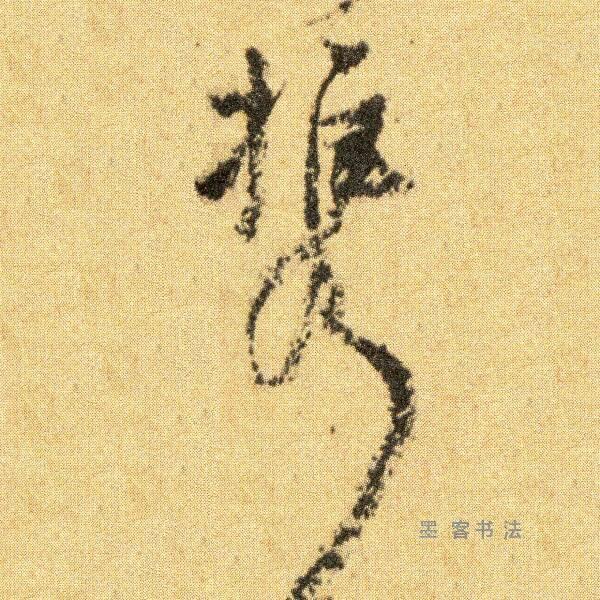 携
墨客书法